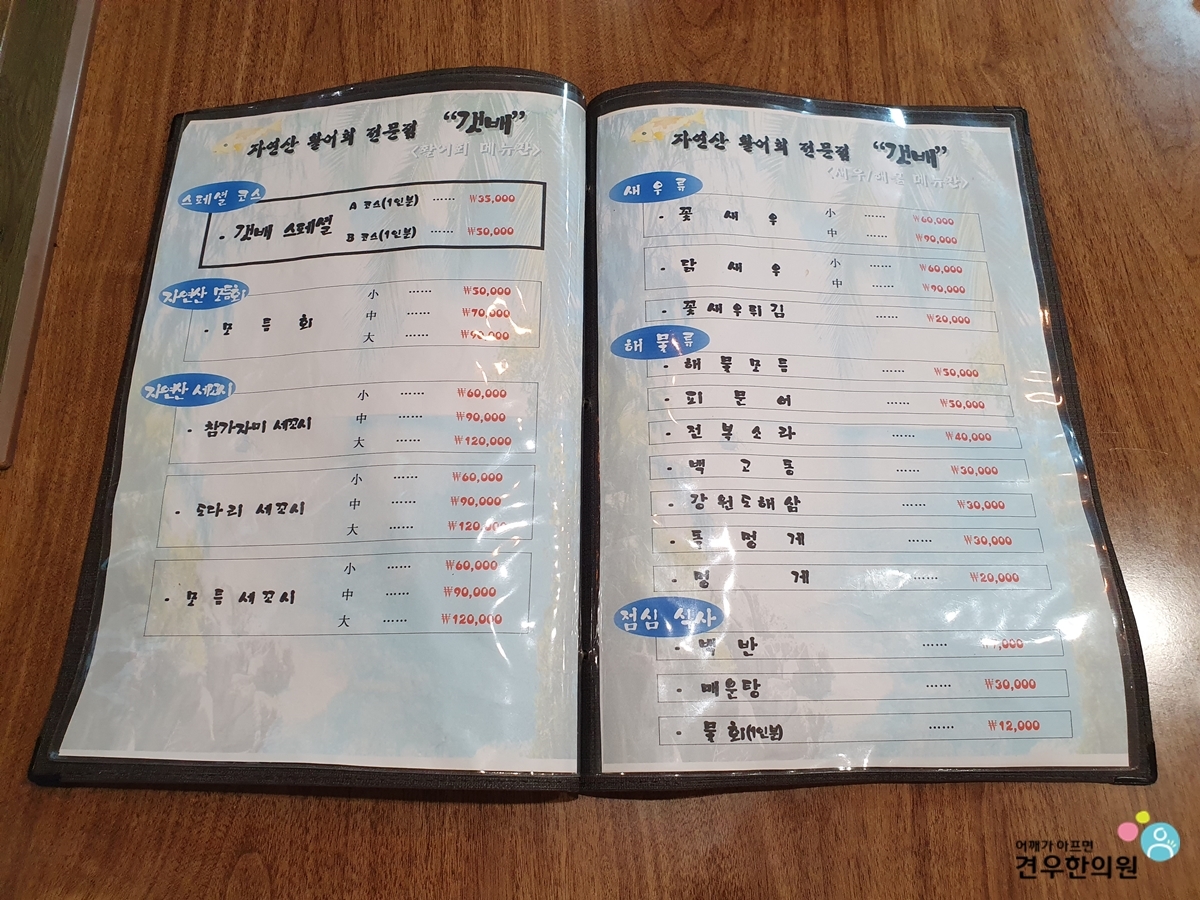 자연산 활어회 전문점 “갯배”
<활어회 메뉴판>
스페셜 코스
· 갯배 스페셜
A 코스(1인분) ...... ₩35,000
B 코스(1인분) ...... ₩50,000
자연산 모듬회
· 모듬회
小 ...... ₩50,000
中 ...... ₩70,000
大 ...... ₩90,000
자연산 세꼬시
· 참가자미 세꼬시
小 ...... ₩60,000
中 ...... ₩90,000
大 ...... ₩120,000
· 도다리 세꼬시
小 ...... ₩60,000
中 ...... ₩90,000
大 ...... ₩120,000
· 모듬세꼬시
小 ...... ₩60,000
中 ...... ₩90,000
大 ...... ₩120,000
자연산 활어회 전문점 “갯배”
<새우/해물 메뉴판>
새우류
· 꽃새우
小 ...... ₩60,000
中 ...... ₩90,000
· 닭새우
小 ...... ₩60,000
中 ...... ₩90,000
· 꽃새우튀김 ...... ₩20,000
해물류
· 해물모듬 ...... ₩50,000
· 피문어 ...... ₩50,000
· 전복소라 ...... ₩40,000
· 백고동 ...... ₩30,000
· 강원도해삼 ...... ₩30,000
· 돌멍게 ...... ₩30,000
· 멍게 ...... ₩20,000
점심 식사
· 백반 ......
· 매운탕 ...... ₩30,000
· 물회(1인분) ...... ₩12,000
어깨가 아프면
견우한의원